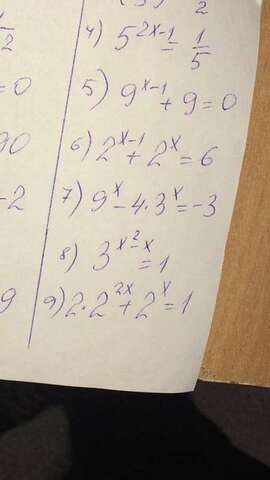 1
2
=0
90
-2
9
2
4) 5^{2x-1} = 1/5
5) 9^{x-1} + 9 = 0
6) 2^{x-1} + 2^x = 6
7) 9^x - 4·3^x = -3
8) 3^{x^2-x} = 1
9) 2·2^{2x} + 2^x = 1